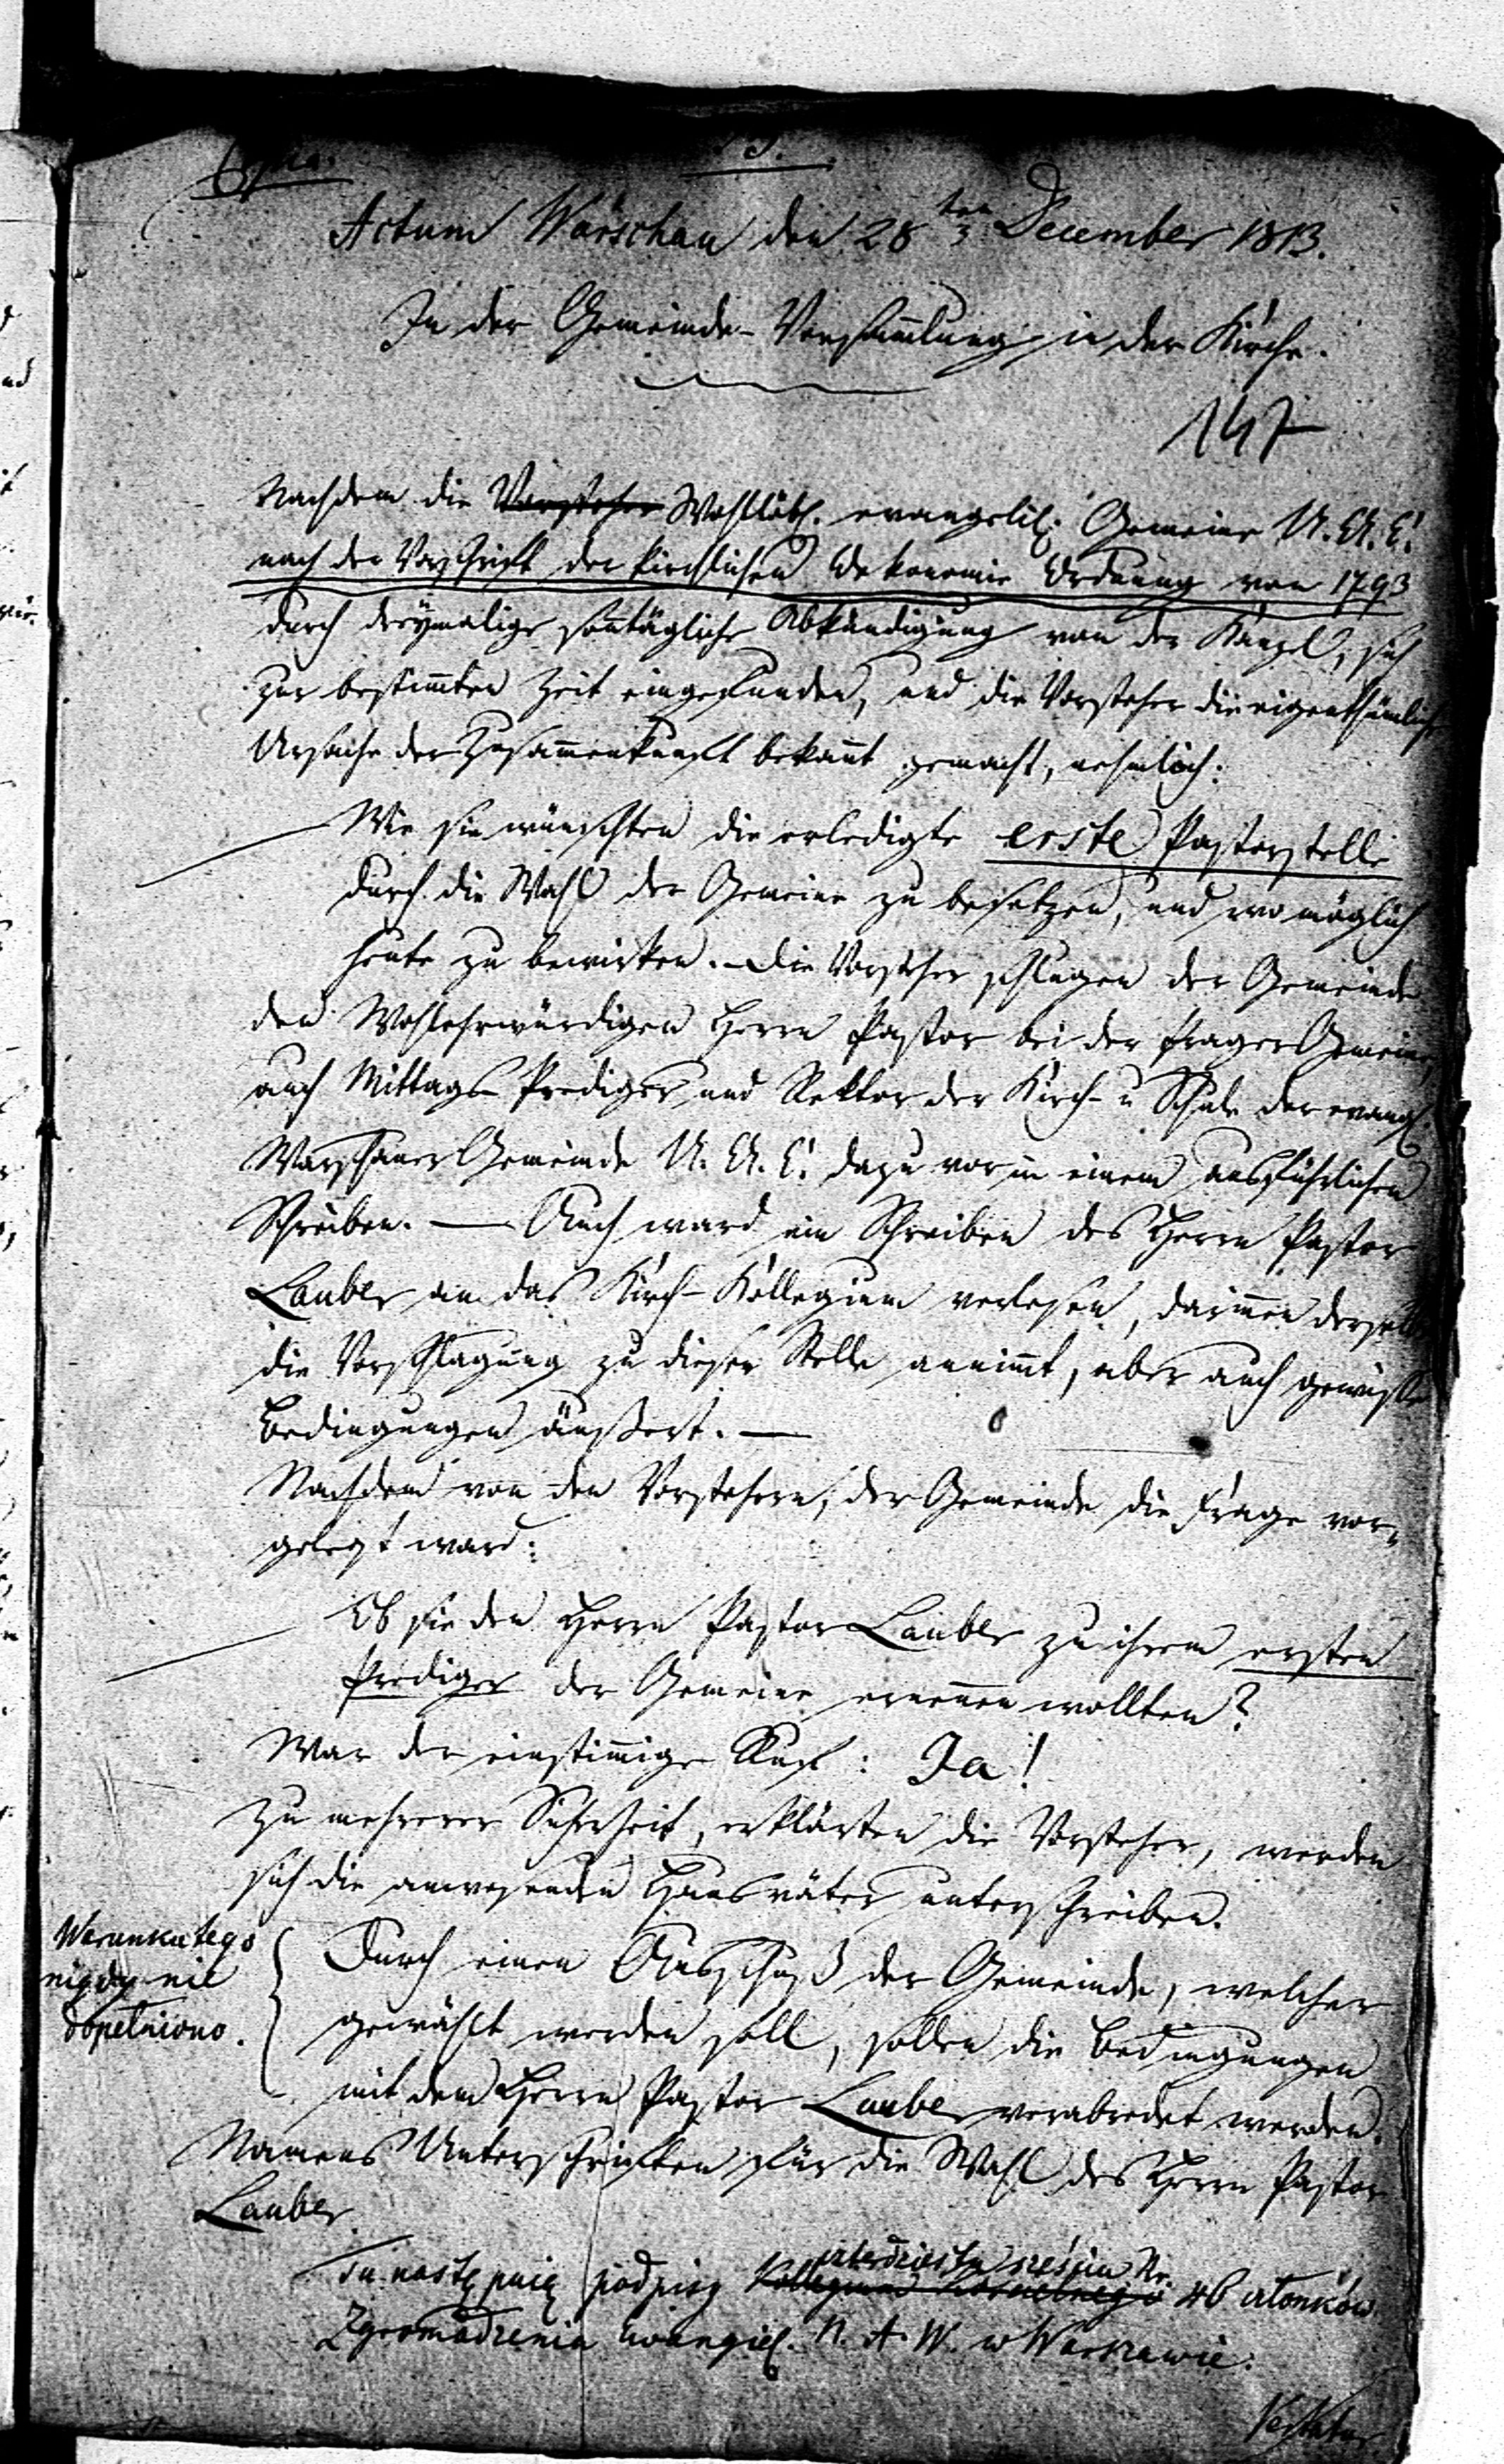 Copia.
Actum Warschau den 28ten December 1813.
In der Gemeinde-Versammlung in der Kirche.
147
Nachdem die Vorsteher Wohllöbl. evangelis. Gemeine U. A. C.
nach der Vorschrift der kirchlichen Oekonomie Ordnung von 1793
durch dreymalige sontägliche Abkündigung von der Kanzel, sich
zur bestimten Zeit eingefunden, und die Vorsteher die eigenthümliche
Ursache der Zusamenkunft bekant gemacht, nehmlich:
Wie sie wünschten die erledigte erste Pastorstelle
durch die Wahl der Gemeine zu besetzen, und wo möglich
heute zu bewirken. Die Vorsteher schlugen der Gemeinde
den Wohlehrwürdigen Herrn Pastor bei der Prager Gemeine,
auch Mittags-Prediger und Rektor der Kirch- u Schule der evangl.
Warschauer Gemeinde U. A. C. dazu vor in einem ausführlichen
Schreiben. — Auch ward ein Schreiben des Herrn Pastor
Lauber an das Kirch-Kollegium verlesen, darinnen derselbe
die Vorschlagung zu dieser Stelle annimt, aber auch gewisse
Bedingungen äußert. —
Nachdem von den Vorstehern, der Gemeinde die Frage vor-
gelegt ward:
Ob sie den Herrn Pastor Lauber zu ihrem ersten
Prediger der Gemeine ernennen wollten?
War der einstimige Ruf: Ja!
Zu mehrerer Sicherheit, erklärten die Vorsteher, werden
sich die anwesenden Hausväter unterschreiben.
Warunku tego
nigdy nie
dopełniono.
Durch einen Ausschuß der Gemeinde, welcher
gewählt werden soll, sollen die Bedingungen
mit dem Herrn Pastor Lauber verabredet werden.
Namens Unterschriften für die Wahl des Herrn Pastor
Lauber
czterdziestu sześciu Nr.
Tu następuią podpisy Kollegium Kościelnego 46 członków
Zgromadzenia Ewangiel. N. A. W. w Warszawie.